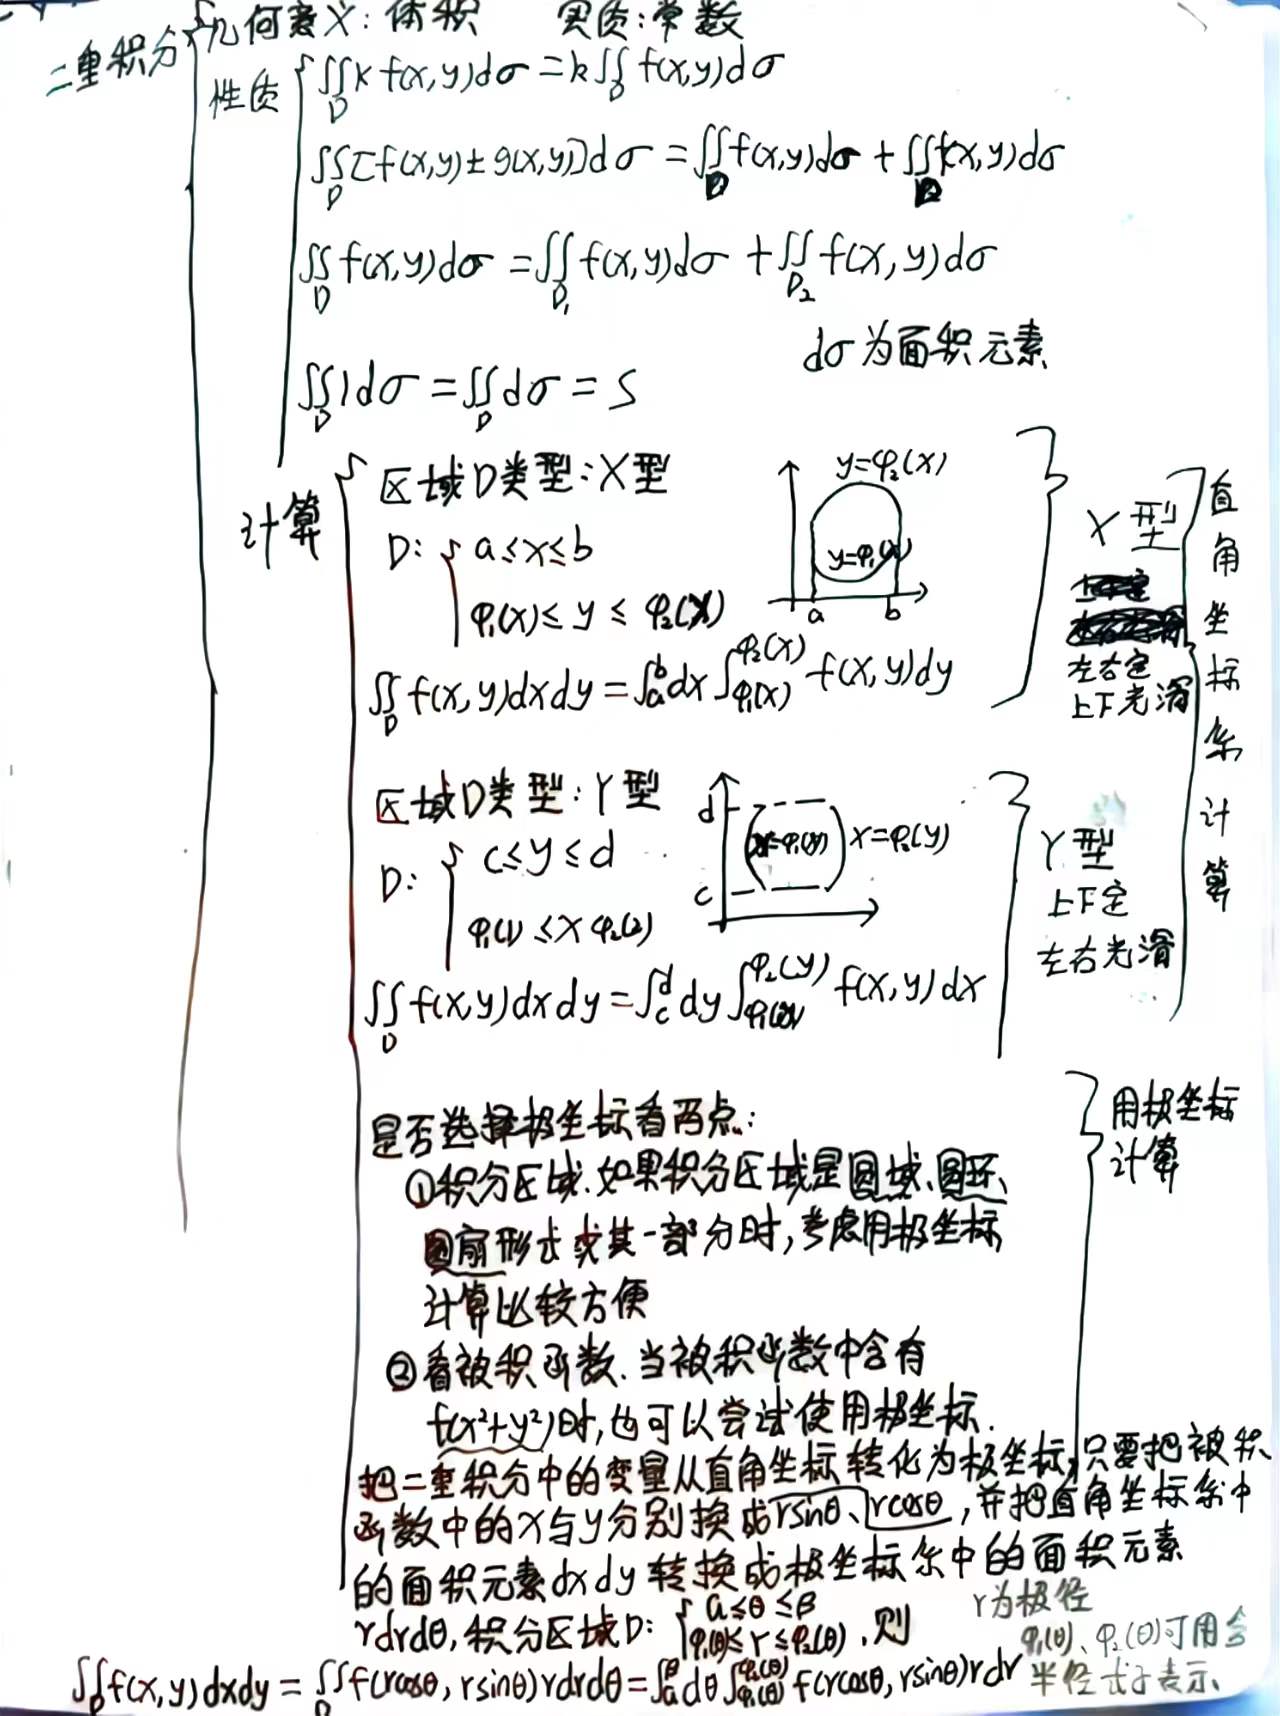 二重积分
几何意义：体积 实质：常数
性质
∬_D k f(x,y)dσ = k∬_D f(x,y)dσ
∬_D [f(x,y)±g(x,y)]dσ = ∬_D f(x,y)dσ + ∬_D f(x,y)dσ
∬_D f(x,y)dσ = ∬_D₁ f(x,y)dσ + ∬_D₂ f(x,y)dσ
dσ为面积元素
∬_D 1dσ = ∬_D dσ = S
计算
区域D类型：X型
D: { a≤x≤b
φ₁(x)≤y≤φ₂(x)
y=φ₂(x)
y=φ₁(x)
a b
∬_D f(x,y)dxdy = ∫_a^b dx ∫_φ₁(x)^φ₂(x) f(x,y)dy
X型
左右定
上下光滑
直角坐标系计算
区域D类型：Y型
D: { c≤y≤d
φ₁(y)≤x φ₂(y)
d
c
x=φ₁(y) x=φ₂(y)
∬_D f(x,y)dxdy = ∫_c^d dy ∫_φ₁(y)^φ₂(y) f(x,y)dx
Y型
上下定
左右光滑
用极坐标
计算
是否选择极坐标看两点：
①积分区域.如果积分区域是圆域、圆环、
圆扇形或其一部分时，考虑用极坐标
计算比较方便
②看被积函数.当被积函数中含有
f(x²+y²)时，也可以尝试使用极坐标.
把二重积分中的变量从直角坐标转化为极坐标，只要把被积
函数中的x与y分别换成rsinθ、rcosθ，并把直角坐标系中
的面积元素dxdy转换成极坐标系中的面积元素
rdrdθ，积分区域D: { a≤θ≤β
φ₁(θ)≤r≤φ₂(θ)，则
r为极径
φ₁(θ)、φ₂(θ)可用含
半径式子表示
∬_D f(x,y)dxdy = ∬_D f(rcosθ, rsinθ)rdrdθ = ∫_a^β dθ ∫_φ₁(θ)^φ₂(θ) f(rcosθ, rsinθ)rdr